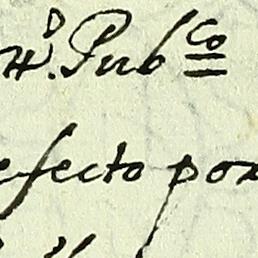 Pub.co
efecto por